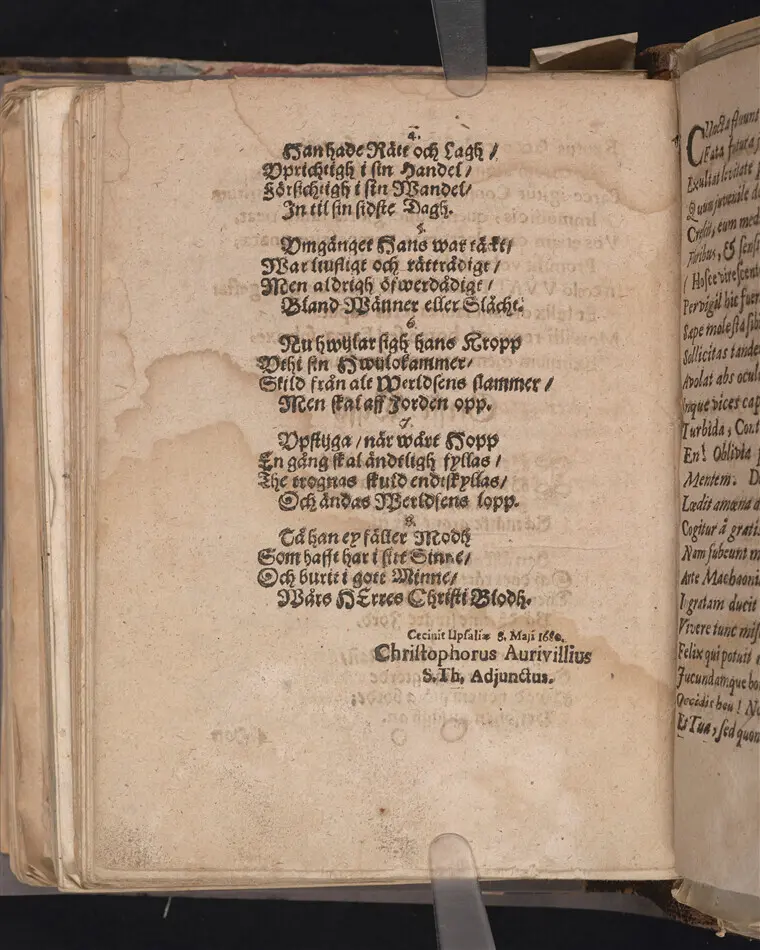 4.
Han hade Rätt och Lagh /
Vprichtigh i sin Handel /
Försichtigh i sin Wandel /
In til sin sidste Dagh.
5.
Vmgänget Hans war täkt /
War liufligt och rättrådigt /
Men aldrigh öfwerdådigt /
Bland Wänner eller Slächt.
6.
Nu hwijlar sigh hans Kropp
Vthi sin Hwijlokammer /
Skild från alt Werldsens slammer /
Men skal aff Jorden opp.
7.
Vpstijga / når wårt Hopp
En gång skal ändtligh fyllas /
The trognas skuld endtskyllas /
Och ändas Werldsens lopp.
8.
Tå han ey fäller Modh
Som hafft har i sitt Sinne /
Och burit i gott Minne /
Wårs HErres Christi Blodh.
Cecinit Upsaliæ 8. Maji 1680.
Christophorus Aurivillius
S. Th. Adjunctus.
Fata futura
Exultat
Quum juvenile
Credit, eum
foribus, &
Pervigil hic
Sæpe molesta sibi
Sollicitas tandem
Avolat abs
Inque vices
Turbida,
En! Oblivia
Mentem.
Lædit amæna
Cogitur à
Nam subeunt
Arte
Ingratam ducit
Vivere tunc
Felix qui potuit
Jucundamque
Occidis heu!
Et Tua, sed